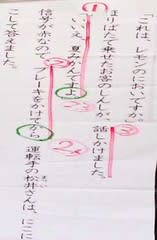 「これは、レモンのにおいですか。」
ほりばたで乗せたお客のしんしが、話しかけました。
「いいえ、夏みかんですよ。」
信号が赤なので、ブレーキをかけてから、運転手の松井さんは、にこに
こして答えました。
①
②
③